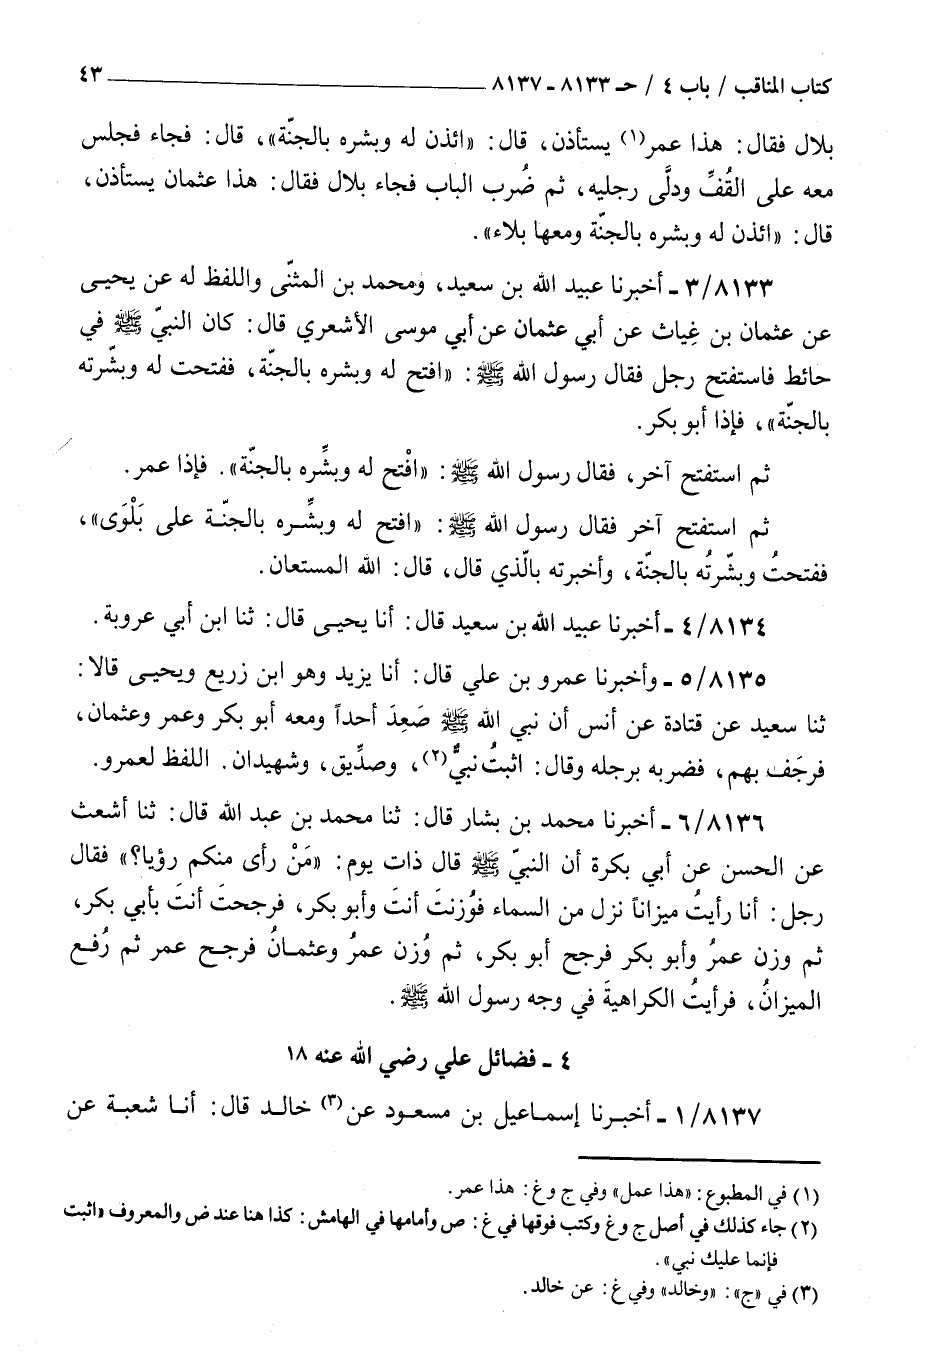 كتاب المناقب / باب ٤ / حـ ٨١٣٣ ـ ٨١٣٧ ٤٣
بلال فقال: هذا عمر(١) يستأذن، قال: «ائذن له وبشره بالجنّة»، قال: فجاء فجلس
معه على القُفِّ ودلَّى رجليه، ثم ضُرب الباب فجاء بلال فقال: هذا عثمان يستأذن،
قال: «ائذن له وبشره بالجنّة ومعها بلاء».
٣/٨١٣٣ ـ أخبرنا عبيد الله بن سعيد، ومحمد بن المثنّى واللفظ له عن يحيى
عن عثمان بن غِياث عن أبي عثمان عن أبي موسى الأشعري قال: كان النبيّ ﷺ في
حائط فاستفتح رجل فقال رسول الله ﷺ: «افتح له وبشره بالجنّة، ففتحت له وبشّرته
بالجنّة»، فإذا أبو بكر.
ثم استفتح آخر، فقال رسول الله ﷺ: «افْتح له وبشِّره بالجنّة». فإذا عمر.
ثم استفتح آخر فقال رسول الله ﷺ: «افتح له وبشِّره بالجنّة على بَلْوَى»،
ففتحتُ وبشّرتُه بالجنّة، وأخبرته بالّذي قال، قال: الله المستعان.
٤/٨١٣٤ ـ أخبرنا عبيد الله بن سعيد قال: أنا يحيى قال: ثنا ابن أبي عروبة.
٥/٨١٣٥ ـ وأخبرنا عمرو بن علي قال: أنا يزيد وهو ابن زريع ويحيى قالا:
ثنا سعيد عن قتادة عن أنس أن نبي الله ﷺ صَعِدَ أحداً ومعه أبو بكر وعمر وعثمان،
فرجَف بهم، فضربه برجله وقال: اثبتُ نبيٌّ(٢)، وصدِّيق، وشهيدان. اللفظ لعمرو.
٦/٨١٣٦ ـ أخبرنا محمد بن بشار قال: ثنا محمد بن عبد الله قال: ثنا أشعث
عن الحسن عن أبي بكرة أن النبيّ ﷺ قال ذات يوم: «مَنْ رأى منكم رؤيا؟» فقال
رجل: أنا رأيتُ ميزاناً نزل من السماء فوُزنتَ أنتَ وأبو بكر، فرجحتَ أنتَ بأبي بكر،
ثم وزن عمرُ وأبو بكر فرجح أبو بكر، ثم وُزن عمرُ وعثمانُ فرجح عمر ثم رُفع
الميزانُ، فرأيتُ الكراهيةَ في وجه رسول الله ﷺ.
٤ ـ فضائل علي رضي الله عنه ١٨
١/٨١٣٧ ـ أخبرنا إسماعيل بن مسعود عن(٣) خالد قال: أنا شعبة عن
(١) في المطبوع: «هذا عمل» وفي ج وغ: هذا عمر.
(٢) جاء كذلك في أصل ج وغ وكتب فوقها في غ: ص وأمامها في الهامش: كذا هنا عند ض والمعروف «اثبت
فإنما عليك نبي».
(٣) في «ج»: «وخالد» وفي غ: عن خالد.